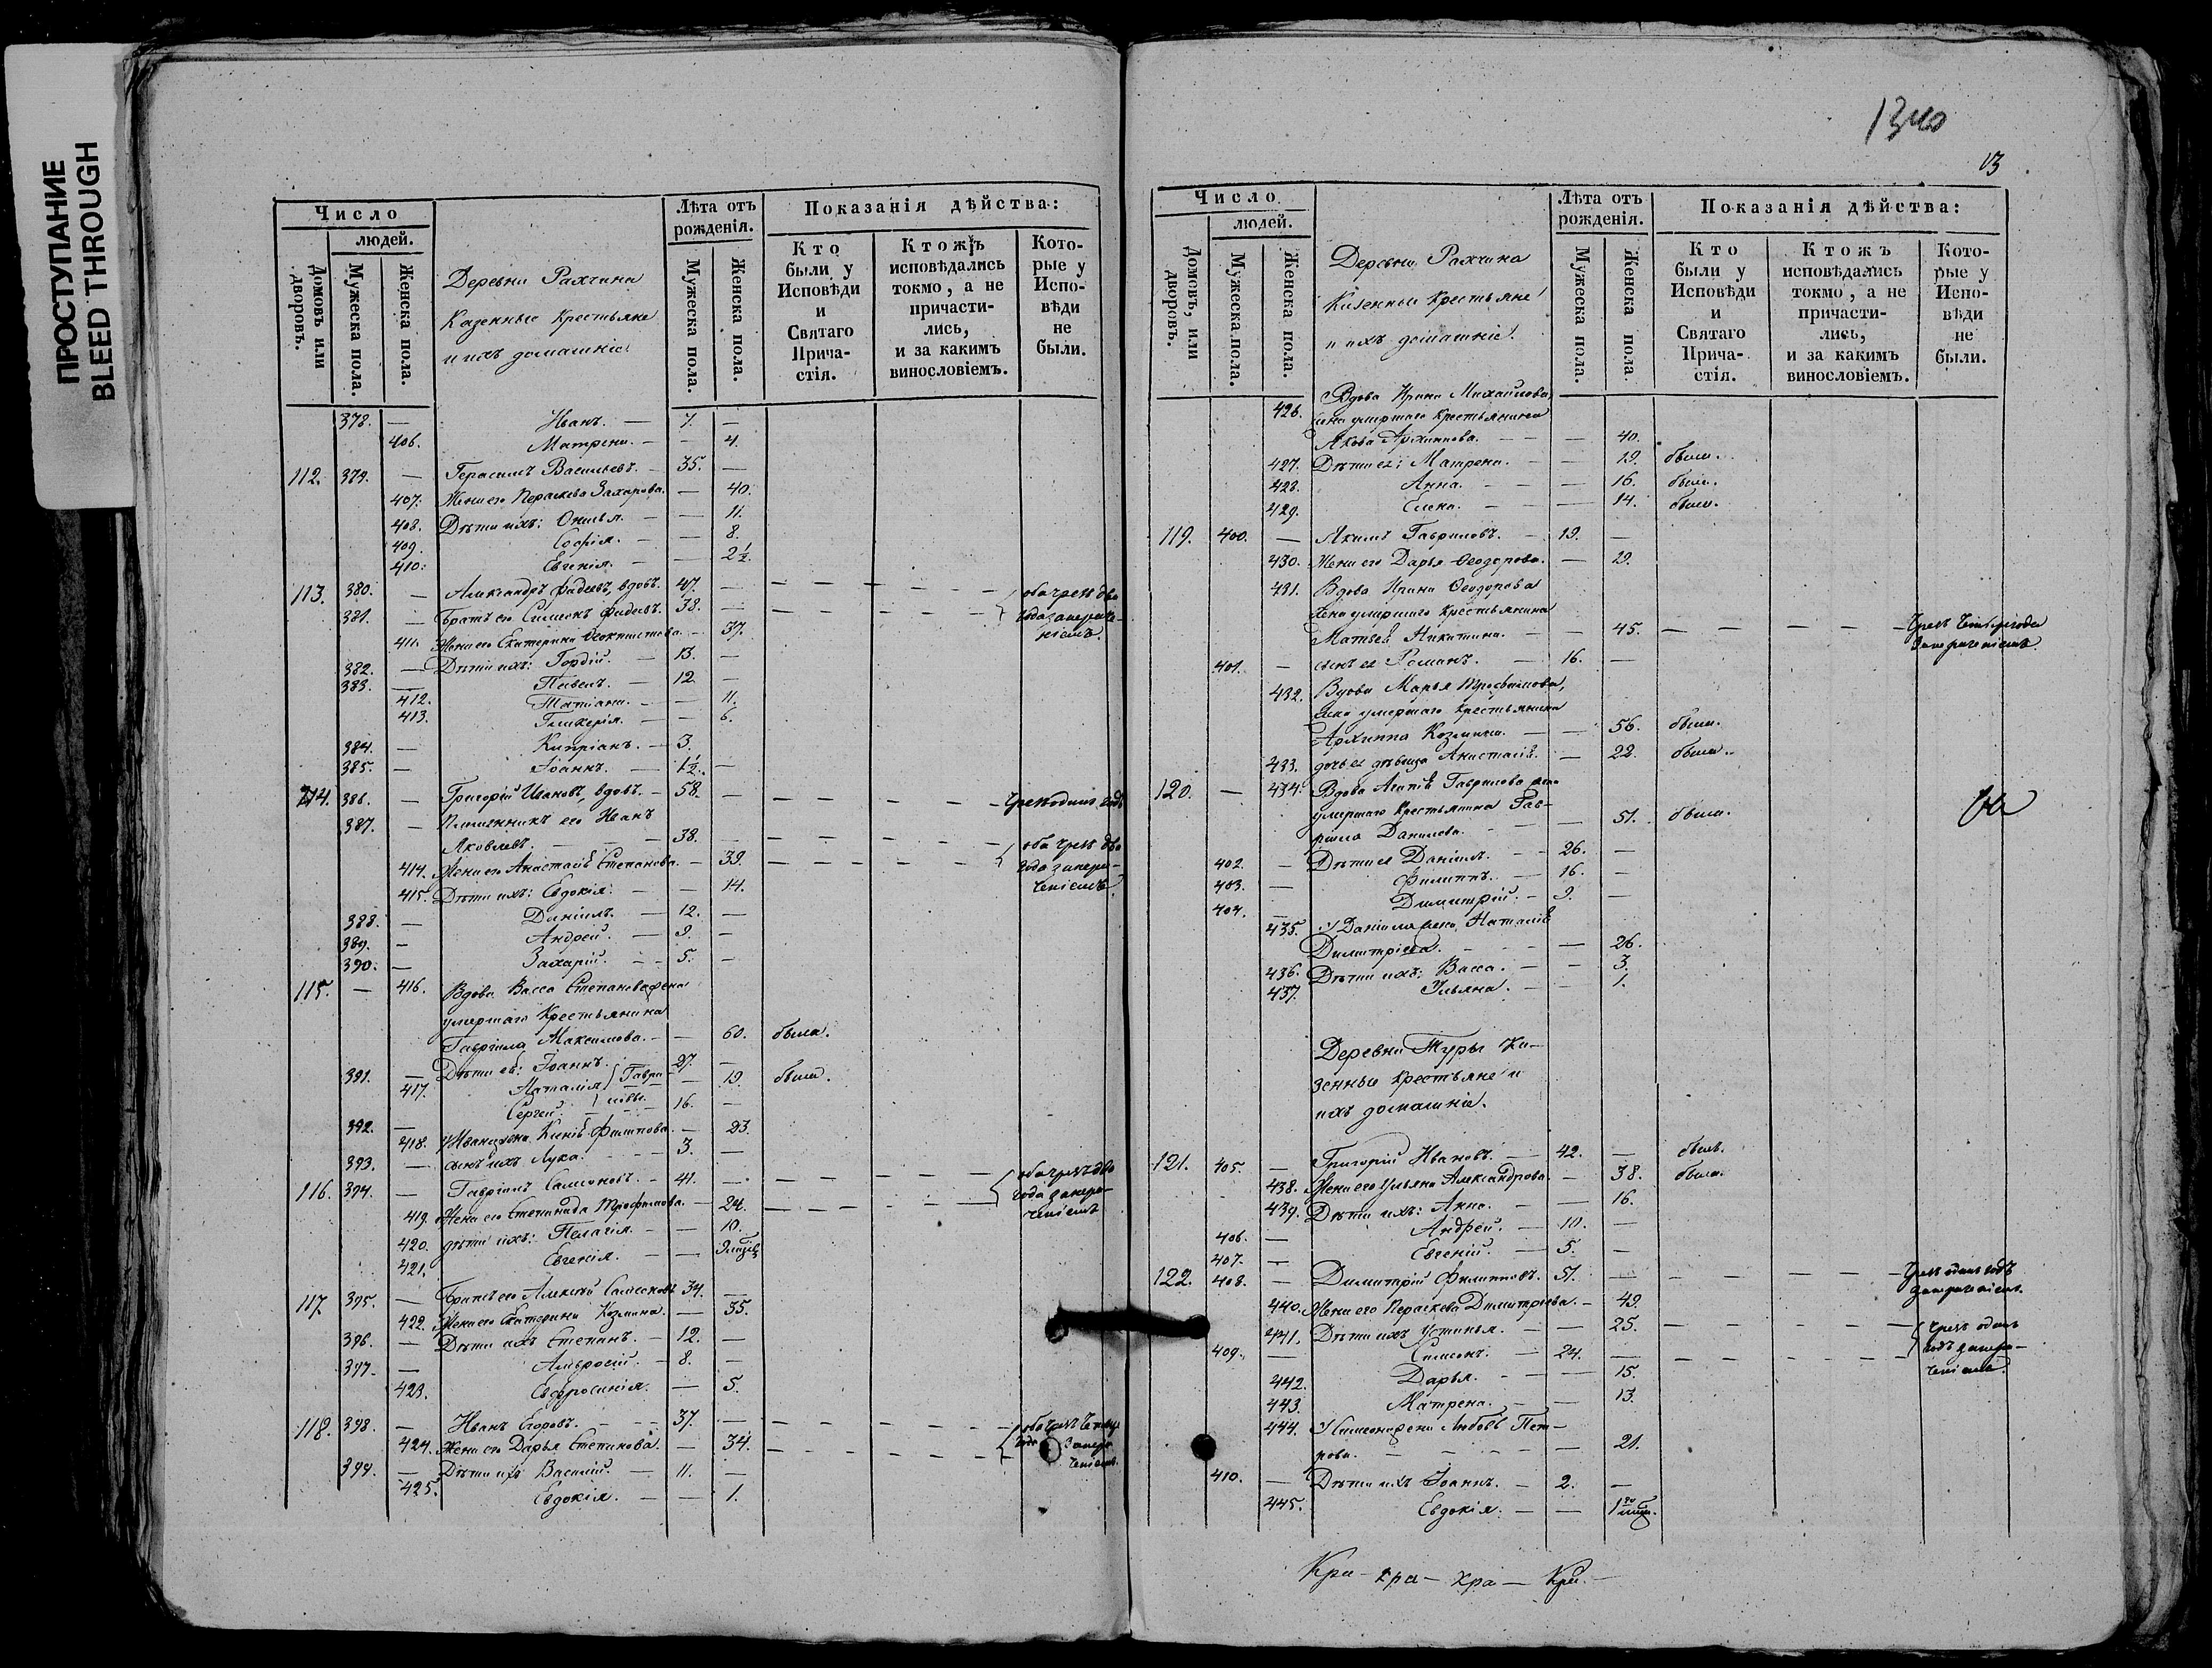 ПРОСТУПАНИЕ
BLEED THROUGH
Число
людей.
Домовъ или дворовъ.
Мужеска пола.
Женска пола.
Деревни Рахчина
Казенные Крестьяне
и ихъ домашніе
Лѣта отъ рожденія.
Мужеска пола.
Женска пола.
Показанія дѣйства:
Кто были у Исповѣди и Святаго Причастія.
Ктожъ исповѣдались токмо, а не причастились, и за какимъ винословіемъ.
Которые у Исповѣди не были.
378. — Иванъ. — 7. —
406. Матрена. — — 4.
112. 379. — Герасимъ Васильевъ. — 35. —
407. Жена его Параскева Захарова. — 40.
408. Дѣти ихъ: — — 11.
409. Софія. — — 8.
410. Евгенія. — — 2½
113. 380. — Александръ Фадеевъ, вдовъ. 47. — — — — — — оба чрезъ два
381. — Братъ его Симеонъ Фадеевъ. 38. — — — — — — года за нераче-
411. Жена его Екатерина Феоктистова. — 37. ніемъ.
382. — Дѣти ихъ: Гордій. — 13. —
383. — Павелъ. — 12. —
412. Татіана. — — 11.
413. Гликерія. — — 6.
384. — Кипріанъ. — 3.
385. — Іоаннъ. — 1½. —
114. 386. — Григорій Ивановъ, вдовъ. — 58. — — — — — — Чрезъ одинъ годъ
387. — Племянникъ его Иванъ
Яковлевъ. — — — 38. — — — — — — оба чрезъ два
414. Жена его Анастасія Степанова. — 39. — — — — — года за нера-
415. Дѣти ихъ: Евдокія. — — 14. ченіемъ
388. — Даніилъ. — 12. —
389. — Андрей. — 9. —
390. — Захарій. — — 5. —
115. — 416. Вдова Васса Степанова жена
умершаго Крестьянина
Гавріила Максимова. — — 60. была.
391. — Дѣти ея: Іоаннъ. 27. —
417. Наталія Гаври- — 19. была.
Сергей. — ловы. — 16. —
392. —
418. У Ивана жена Ксенія Филипова. — 23.
393. — сынъ ихъ Лука. — — — 3. —
116. 394. — Гавріилъ Самсоновъ. — 41. — — — — — — оба чрезъ два
419. Жена его Степанида Трофимова. — 24. — — — — — года за нера-
420. дѣти ихъ: Пелагія. — — 10. ченіемъ
421. Евгенія. — —
117. 395. — Братъ его Алексій Самсоновъ 34. —
422. Жена его Екатерина Козмина. — 35.
396. — Дѣти ихъ Степанъ. — 12. —
397. — Амвросій. — 8. —
423. Евфросинія. — 5.
118. 398. — Иванъ Егоровъ. — — — 37. — — — — — — оба чрезъ
424. Жена его Дарья Степанова. — 34. — — — — — года за нера-
399. — Дѣти ихъ Василій. — 11. — ченіемъ.
425. Евдокія. — — 1.
1340
13
Число
людей.
Домовъ, или дворовъ.
Мужеска пола.
Женска пола.
Деревни Рахчина
Казенные Крестьяне
и ихъ домашніе.
Лѣта отъ рожденія.
Мужеска пола.
Женска пола.
Показанія дѣйства:
Кто были у Исповѣди и Святаго Причастія.
Ктожъ исповѣдались токмо, а не причастились, и за какимъ винословіемъ.
Которые у Исповѣди не были.
426. Вдова Ирина Михайлова,
жена умершаго Крестьянина
Якова Архиппова. — — — 40.
427. Дѣти ея: Матрена. — — 19. была.
428. Анна. — — — 16. была.
429. Елена. — — — 14. была.
119. 400. — Акимъ Гавриловъ. — 19. —
430. Жена его Дарья Феодорова. —
431. Вдова Ирина Феодорова
жена умершаго Крестьянина
Матвея Никитина. — — 45. — — — — — Чрезъ четыре года
401. — сынъ ея Романъ. — 16. — за нераченіемъ.
432. Вдова Марья Трофимова,
жена умершаго Крестьянина
Архиппа Козмина. — — 56. была.
433. дочь ея дѣвица Анастасія. — 22. была.
120. — 434. Вдова Агапія Гаврилова жена
умершаго Крестьянина Гав-
рила Данилова. — — — 51. была.
402. — Дѣти ея Даніилъ. — — 26. —
403. — Филиппъ. — 16. —
404. — Димитрій. — 9. —
435. У Даніила жена Наталія
Димитріева. — — — — 26.
436. Дѣти ихъ: Васса. — — 3.
437. Ульяна. — — 1.
Деревни Туры Ка-
зенные Крестьяне и
ихъ домашніе.
121. 405. — Григорій Ивановъ. — 42. — былъ.
438. Жена его Ульяна Александрова. — 38. была.
439. Дѣти ихъ: Анна. — — 16.
406. — Андрей. — 10. —
407. — Евгеній. — 5. —
122. 408. — Димитрій Филипповъ. 51. — — — — — — Чрезъ одинъ годъ
440. Жена его Параскева Димитріева. — 49. за нераченіемъ.
441. Дѣти ихъ Устинья. — — 25. — — — — — чрезъ одинъ
409. Симеонъ. — 24. — — — — — — годъ за нера-
442. Дарья. — — — 15. ченіемъ.
443. Матрена. — — 13.
444. У Симеона жена Любовь Пет-
рова. — — — — — 21.
410. — Дѣти ихъ Іоаннъ. — 2. —
445. Евдокія. — —
Кра — кра — кра — Кра. —